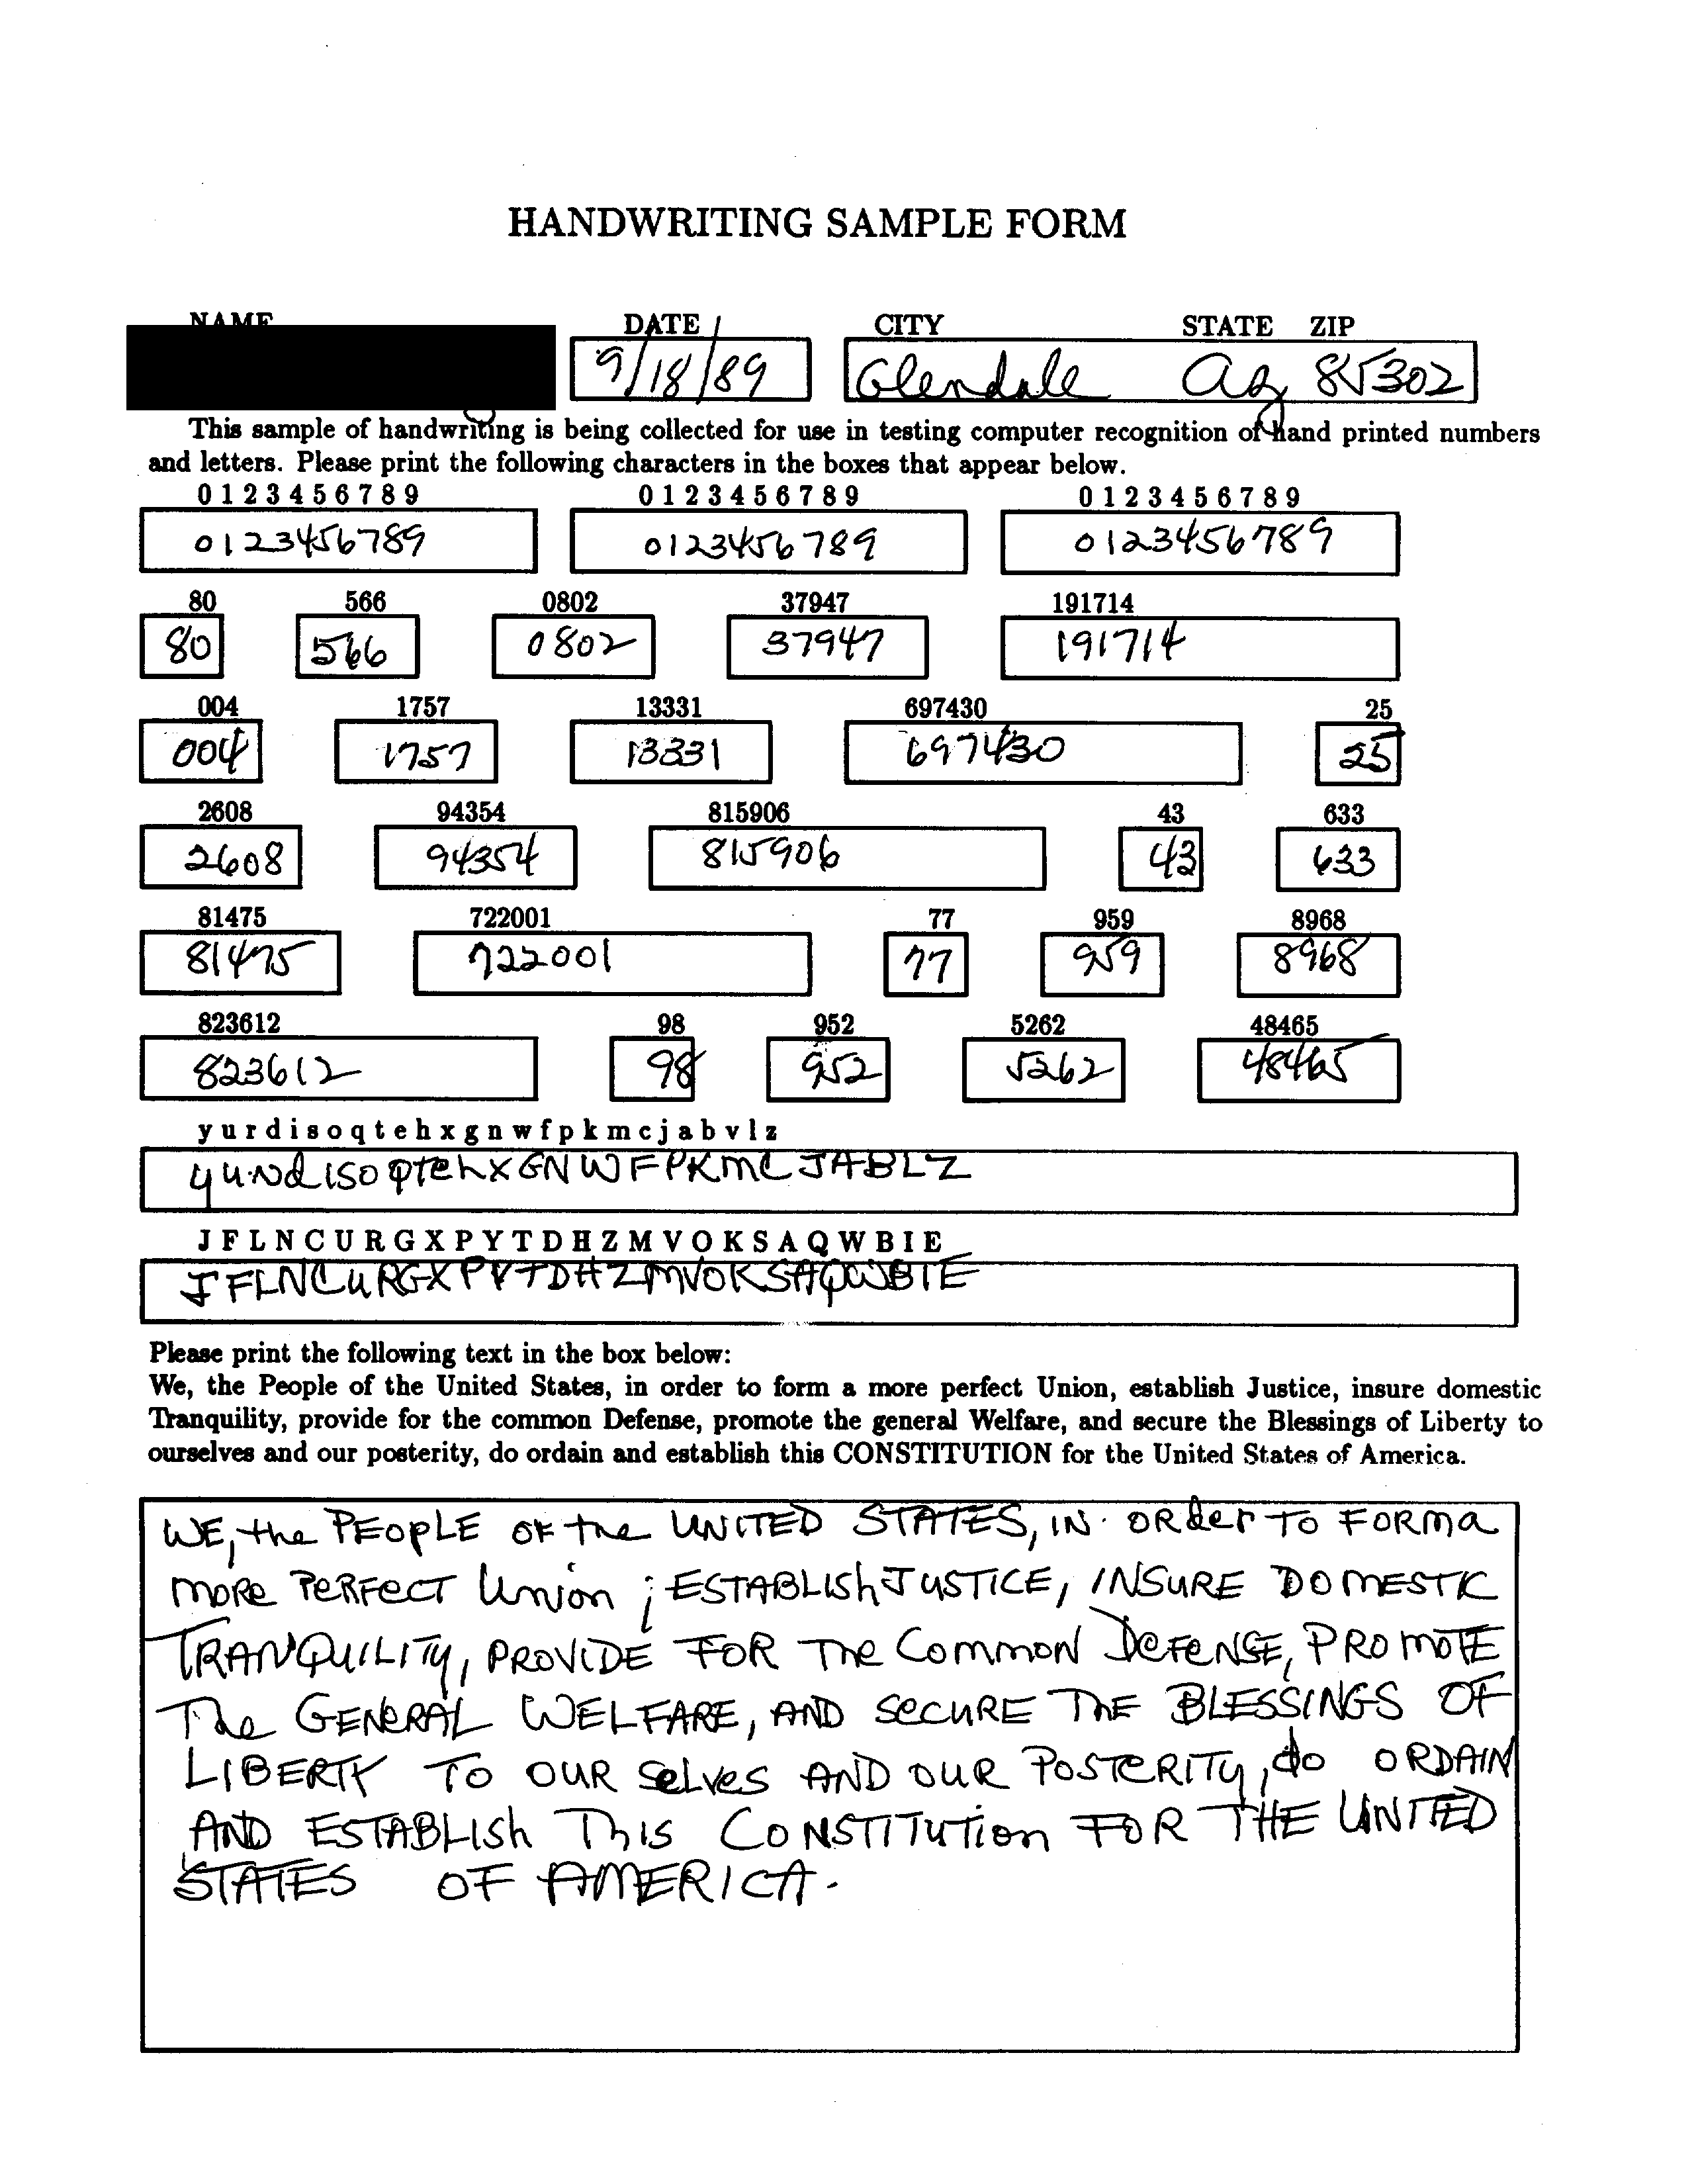 HANDWRITING SAMPLE FORM
NAME DATE CITY STATE ZIP
9/18/89 Glendale Az 85302
This sample of handwriting is being collected for use in testing computer recognition of hand printed numbers
and letters. Please print the following characters in the boxes that appear below.
0 1 2 3 4 5 6 7 8 9 0 1 2 3 4 5 6 7 8 9 0 1 2 3 4 5 6 7 8 9
0123456789 0123456789 0123456789
80 566 0802 37947 191714
80 566 0802 37947 191714
004 1757 13331 697430 25
004 1757 13331 697430 25
2608 94354 815906 43 633
2608 94354 815906 43 633
81475 722001 77 959 8968
81475 722001 77 959 8968
823612 98 952 5262 48465
823612 98 952 5262 48465
y u r d i s o q t e h x g n w f p k m c j a b v l z
yurdisoqtehxGNWFPKMCJABLZ
J F L N C U R G X P Y T D H Z M V O K S A Q W B I E
JFLNCURGXPYTDHZMVOKSAQWBIE
Please print the following text in the box below:
We, the People of the United States, in order to form a more perfect Union, establish Justice, insure domestic
Tranquility, provide for the common Defense, promote the general Welfare, and secure the Blessings of Liberty to
ourselves and our posterity, do ordain and establish this CONSTITUTION for the United States of America.
WE, the PEOPLE OF the UNITED STATES, IN ORder TO FORM a
MORE PERFECT Union ; ESTABLISh JUSTICE, INSURE DOMESTIC
TRANQUILITY, PROVIDE FOR The COMMON DEFENSE, PROMOTE
The GENERAL WELFARE, AND SECURE THE BLESSINGS OF
LIBERTY TO OUR SELVES AND OUR POSTERITY, do ORDAIN
AND ESTABLISh This CONSTITUTion FOR THE UNITED
STATES OF AMERICA.